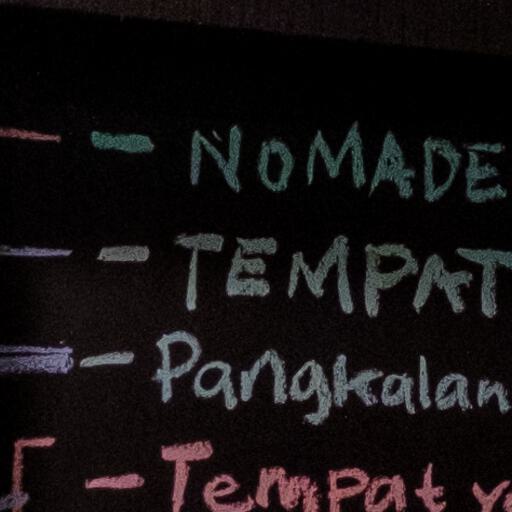 - NOMADE
- TEMPAT
- Pangkalan
- Tempat